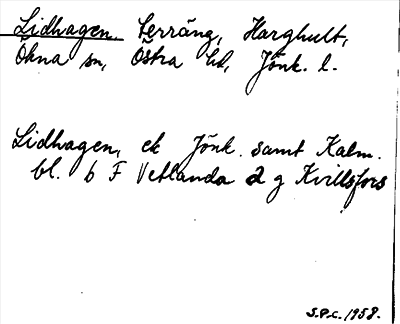 Lidhagen terräng, Harghult,
Ökna sn, Östra hd, Jönk. l.
Lidhagen, ek Jönk. samt Kalm.
bl. 6 F Vetlanda 2 g Kvillsfors
S.P.C. 1958.